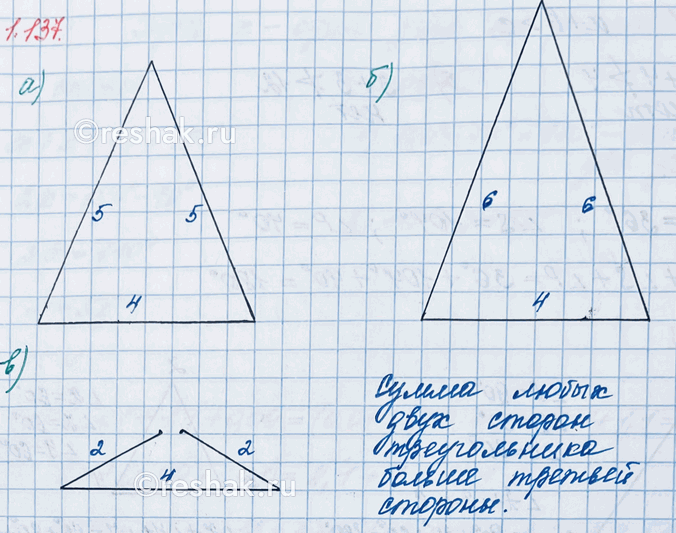 1.137.
а)
б)
©reshak.ru
5 5
6 6
4
4
в)
2 2
4
©reshak.ru
Сумма любых
двух сторон
треугольника
больше третьей
стороны.